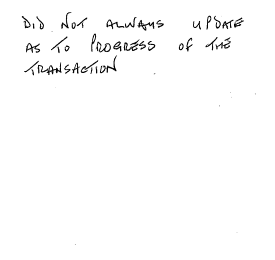 DID NOT ALWAYS UPDATE
AS TO PROGRESS OF THE
TRANSACTION